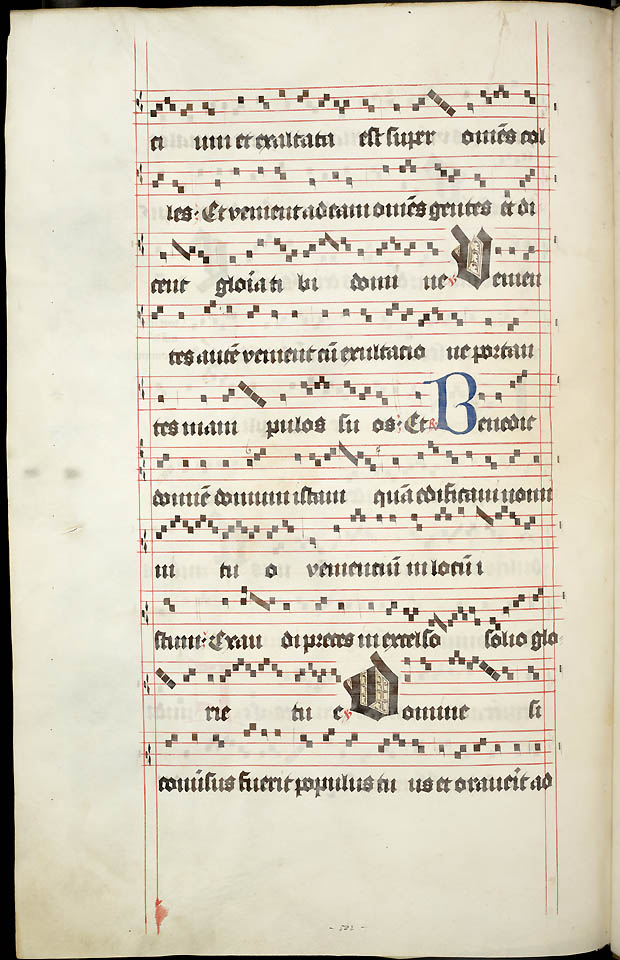 ci um et exaltata est super om̄es col
les: Et venient ad eam om̄es gentes et di
cent gloīa ti bi domi ne ℣ Venien
tes autē venient cū exultatio ne portan
tes mani pulos su os: Et ℟ Benedic
domīe domum istam quā edificavi nomi
ni tu o venientiū in locū i
stum: Exau di preces in excelso solio glo
rie tu e ℣ Domine si
cōv̄sus fuerit populus tu us et oraverit ad
- 502 -